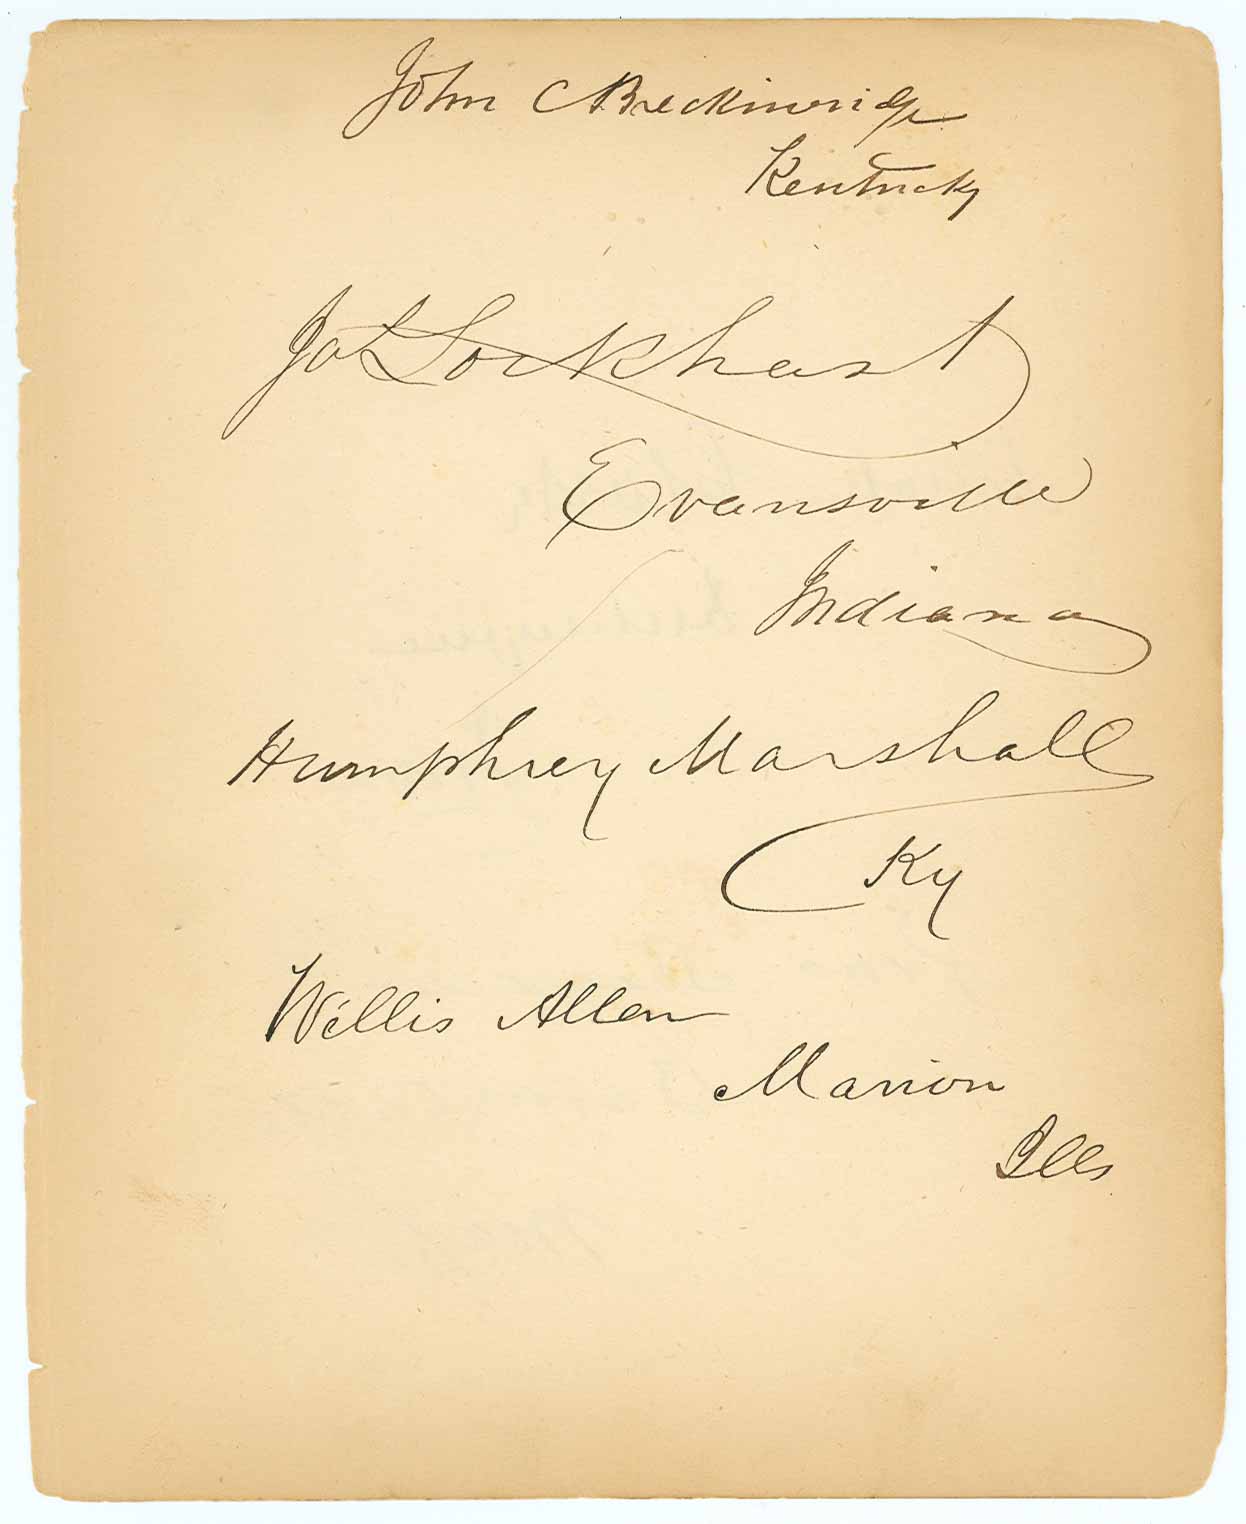 John C Breckinridge
Kentucky
Jas Lockhart
Evansville
Indiana
Humphrey Marshall
Ky
Willis Allen
Marion
Ills